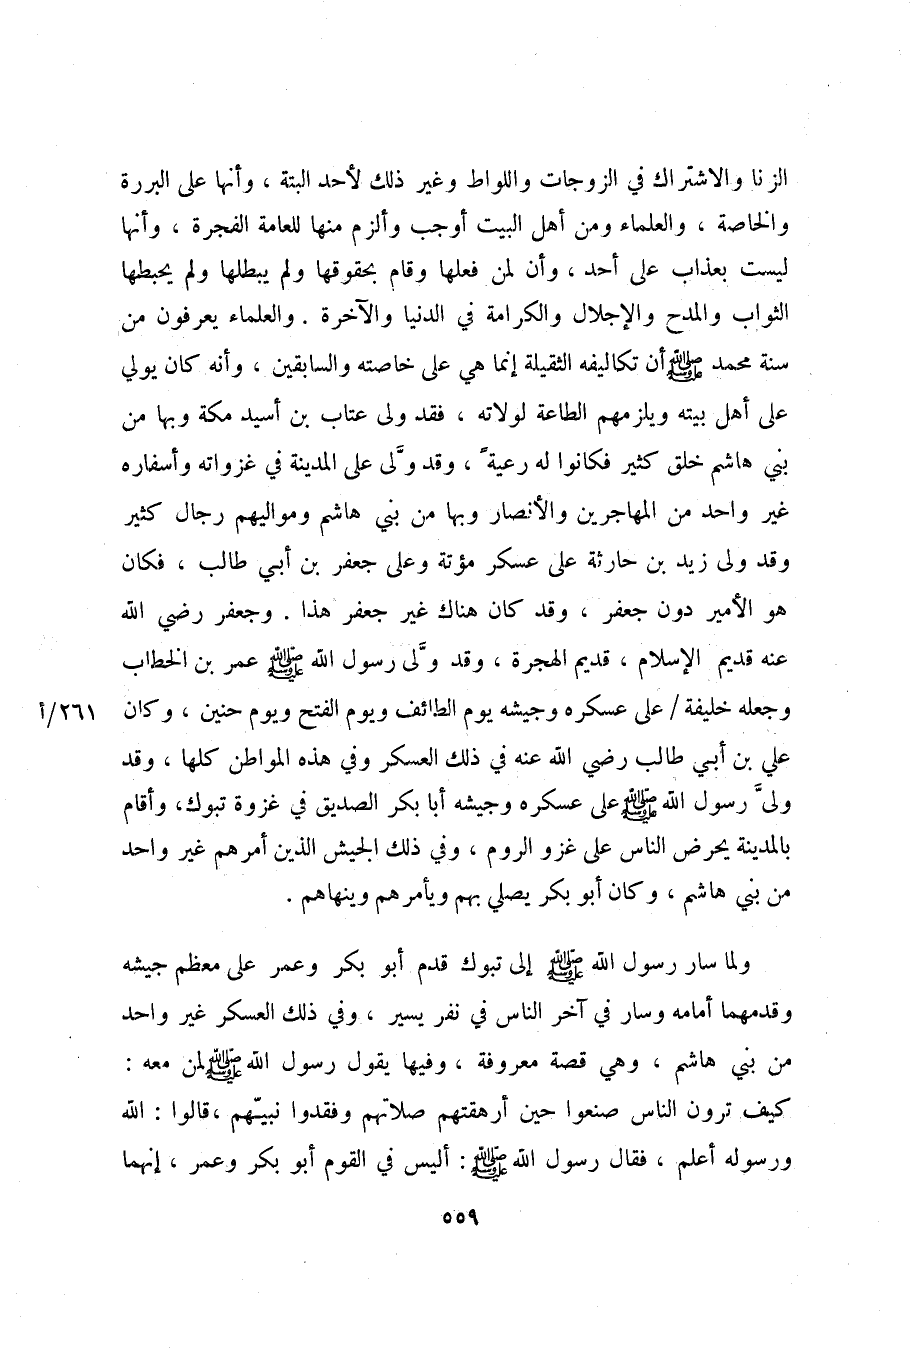 الزنا والاشتراك في الزوجات واللواط وغير ذلك لأحد البتة ، وأنها على البررة
والخاصة ، والعلماء ومن أهل البيت أوجب وألزم منها للعامة الفجرة ، وأنها
ليست بعذاب على أحد ، وأن لمن فعلها وقام بحقوقها ولم يبطلها ولم يحبطها
الثواب والمدح والإجلال والكرامة في الدنيا والآخرة . والعلماء يعرفون من
سنة محمد ﷺ أن تكاليفه الثقيلة إنما هي على خاصته والسابقين ، وأنه كان يولي
على أهل بيته ويلزمهم الطاعة لولاته ، فقد ولى عتاب بن أسيد مكة وبها من
بني هاشم خلق كثير فكانوا له رعية ً ، وقد ولَّى على المدينة في غزواته وأسفاره
غير واحد من المهاجرين والأنصار وبها من بني هاشم ومواليهم رجال كثير
وقد ولى زيد بن حارثة على عسكر مؤتة وعلى جعفر بن أبي طالب ، فكان
هو الأمير دون جعفر ، وقد كان هناك غير جعفر هذا . وجعفر رضي الله
عنه قديم الإسلام ، قديم الهجرة ، وقد ولَّى رسول الله ﷺ عمر بن الخطاب
وجعله خليفة / على عسكره وجيشه يوم الطائف ويوم الفتح ويوم حنين ، وكان ٢٦١/أ
علي بن أبي طالب رضي الله عنه في ذلك العسكر وفي هذه المواطن كلها ، وقد
ولىَّ رسول الله ﷺ على عسكره وجيشه أبا بكر الصديق في غزوة تبوك، وأقام
بالمدينة يحرض الناس على غزو الروم ، وفي ذلك الجيش الذين أمرهم غير واحد
من بني هاشم ، وكان أبو بكر يصلي بهم ويأمرهم وينهاهم .
ولما سار رسول الله ﷺ إلى تبوك قدم أبو بكر وعمر على معظم جيشه
وقدمهما أمامه وسار في آخر الناس في نفر يسير ، وفي ذلك العسكر غير واحد
من بني هاشم ، وهي قصة معروفة ، وفيها يقول رسول الله ﷺ لمن معه :
كيف ترون الناس صنعوا حين أرهقتهم صلاتهم وفقدوا نبيّهم ،قالوا : الله
ورسوله أعلم ، فقال رسول الله ﷺ : أليس في القوم أبو بكر وعمر ، إنهما
٥٥٩